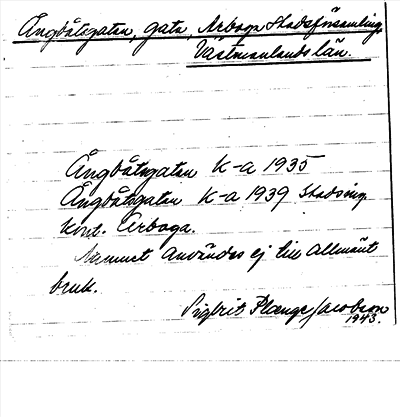 Ångbåtsgatan, gata, Arboga Stadsförsamling,
Västmanlands län.
Ångbåtsgatan K-a 1935
Ångbåtsgatan K-a 1939 Stadsing.
kont. Arboga.
Namnet användes ej till allmänt
bruk.
Sigbrit Plænge Jacobson
1943.